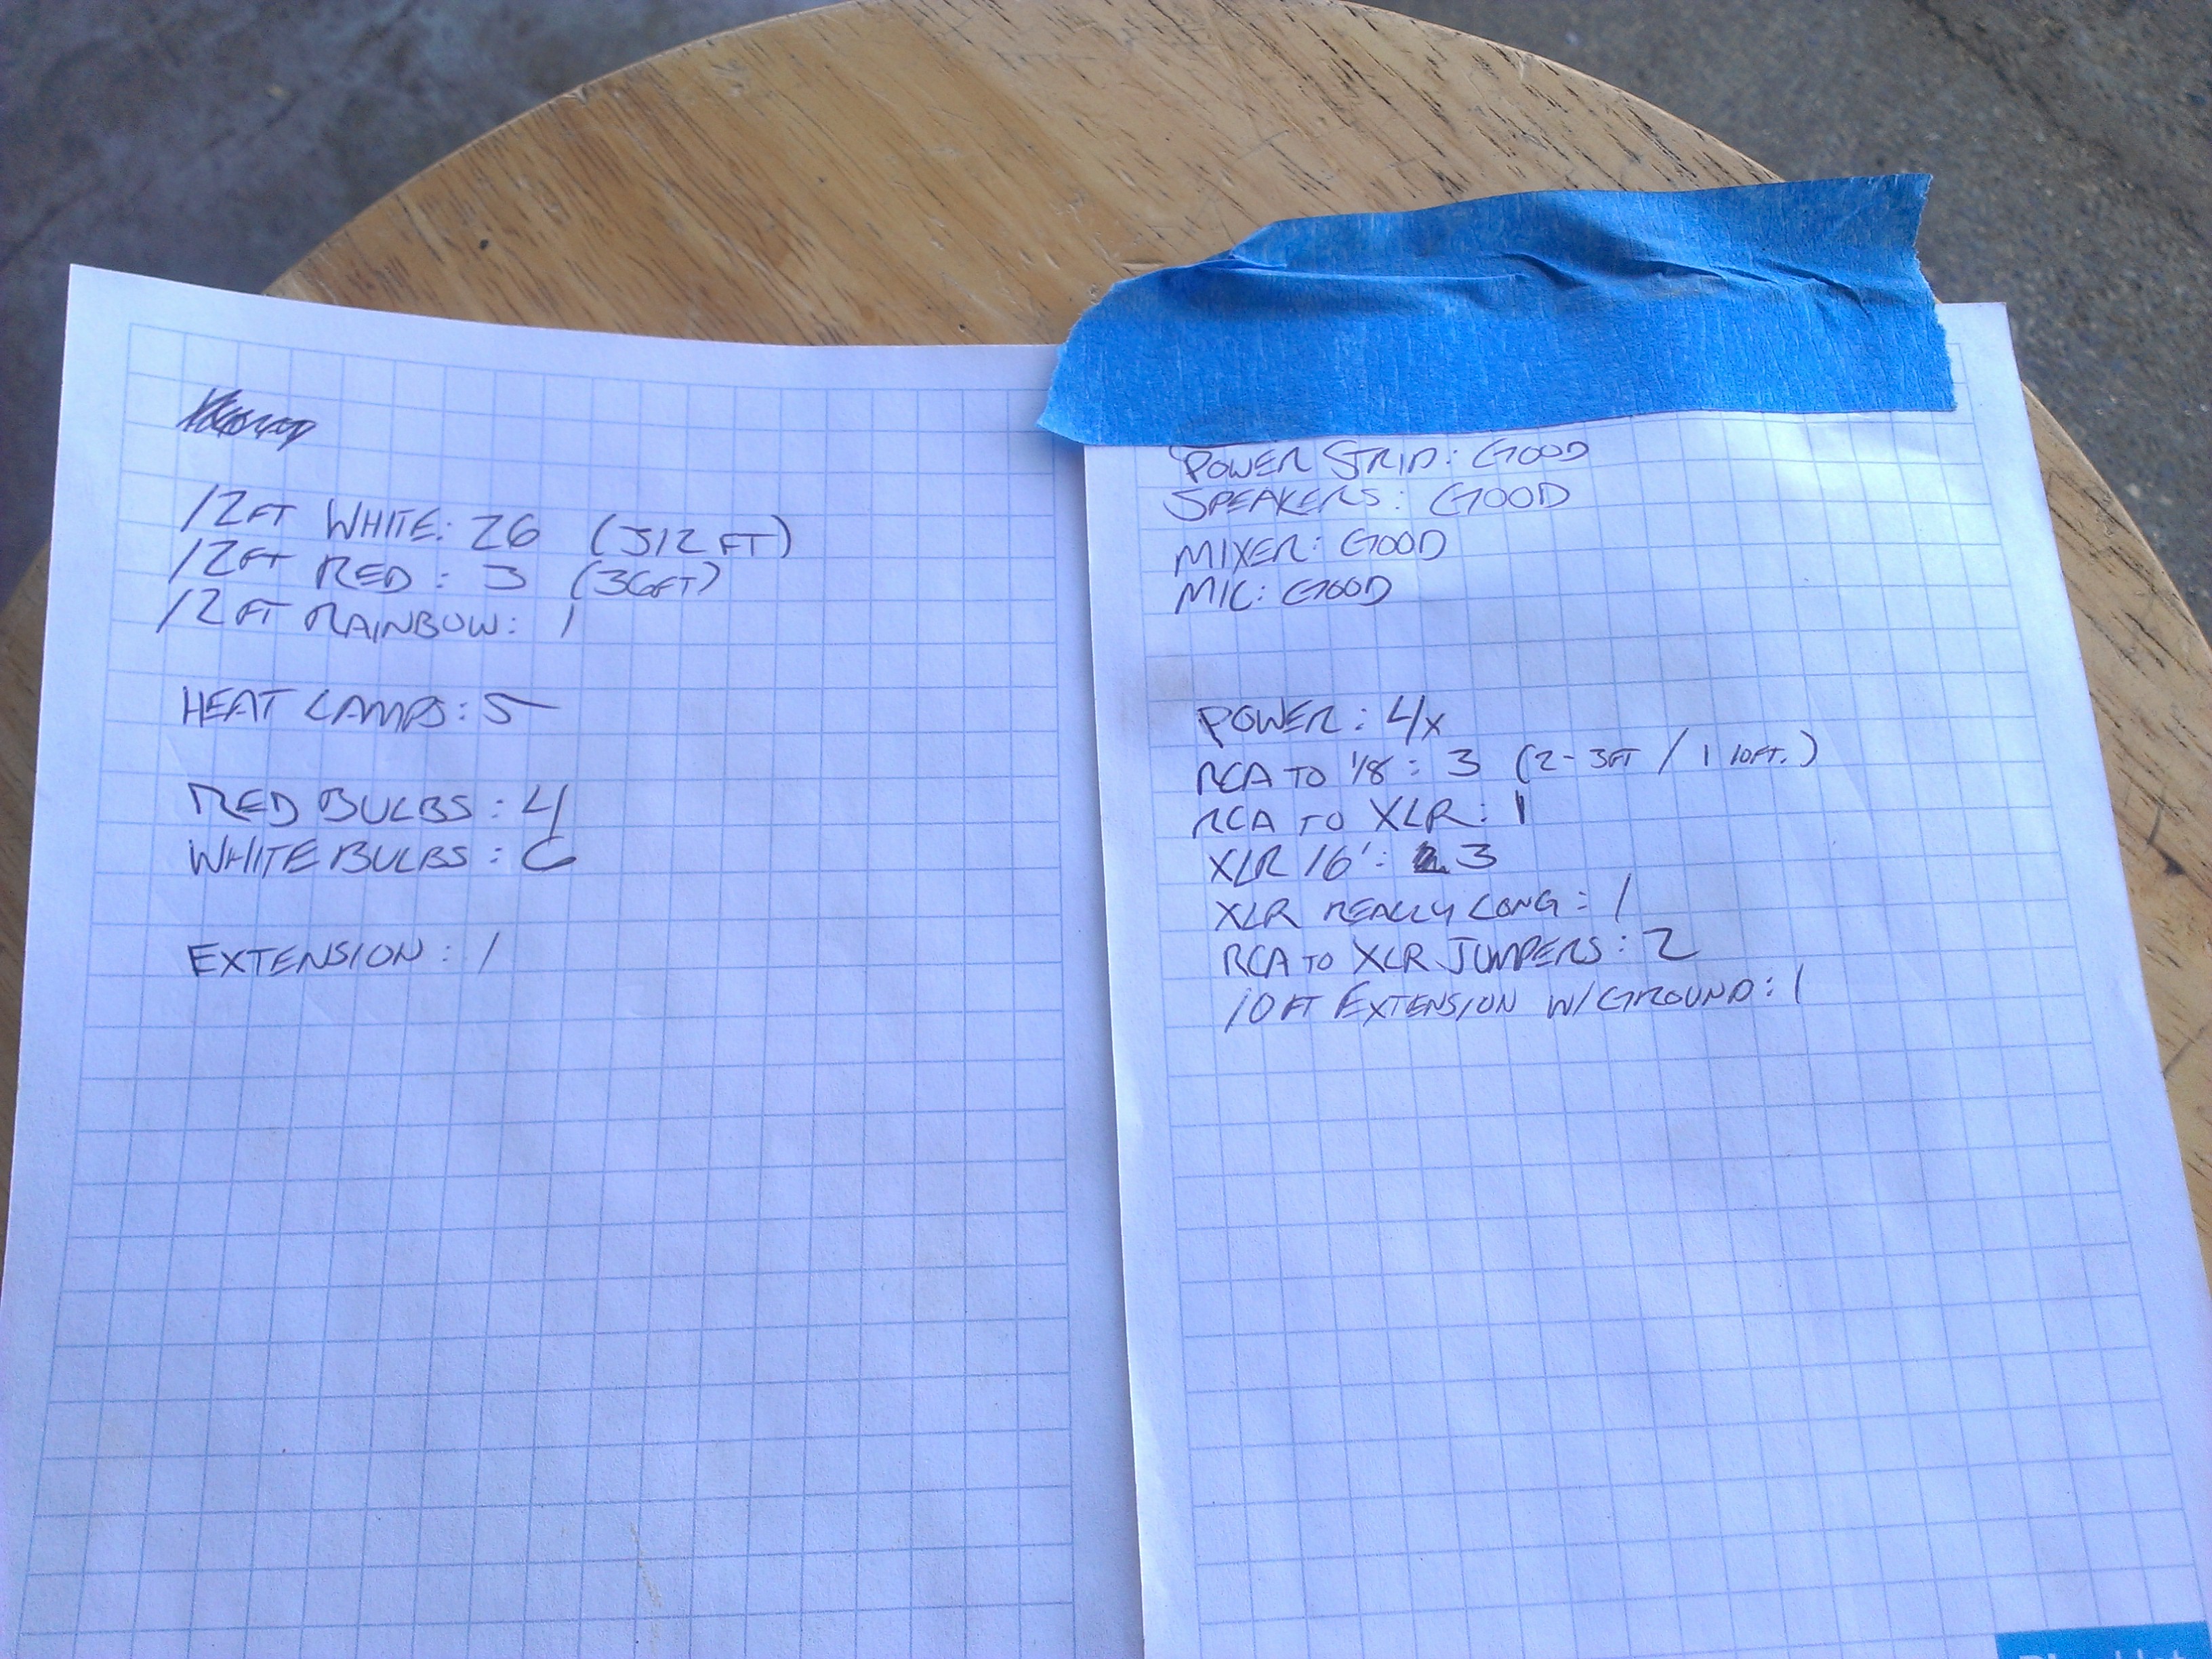 12FT WHITE: 26 (312 FT)
12FT RED: 3 (36FT)
12FT RAINBOW: 1
HEAT LAMPS: 5
RED BULBS: 4
WHITE BULBS: 6
EXTENSION: 1
POWER STRIP: GOOD
SPEAKERS: GOOD
MIXER: GOOD
MIC: GOOD
POWER: 4x
RCA TO 1/8: 3 (2-3FT / 1 10FT.)
RCA TO XLR: 1
XLR 16': 3
XLR REALLY LONG: 1
RCA TO XLR JUMPERS: 2
10FT EXTENSION W/GROUND: 1